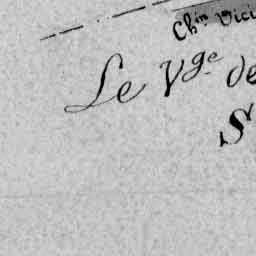 Ch.in Vici
Le Vge de
S